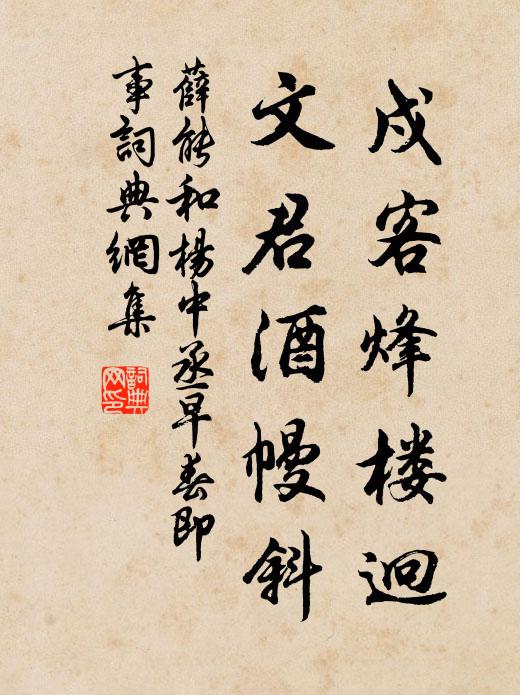 戍客烽楼迥
文君酒幔斜
薛能和楊中丞早春即
事詞典網集
詞典
网印